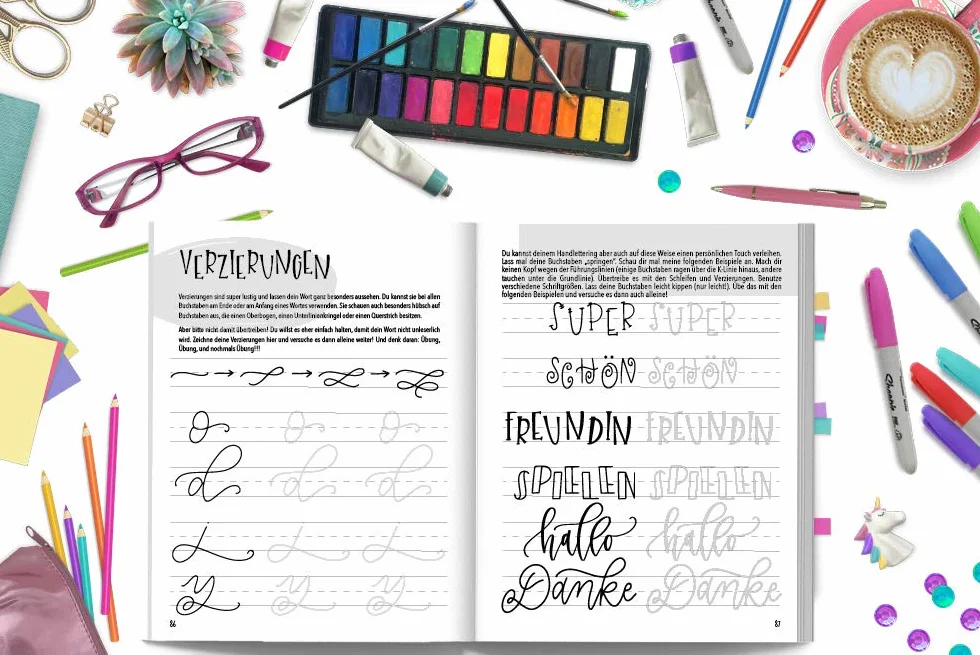 VERZIERUNGEN
Verzierungen sind super lustig und lassen dein Wort ganz besonders aussehen. Du kannst sie bei allen
Buchstaben am Ende oder am Anfang eines Wortes verwenden. Sie schauen auch besonders hübsch auf
Buchstaben aus, die einen Oberbogen, einen Unterlinienkringel oder einen Querstrich besitzen.
Aber bitte nicht damit übertreiben! Du willst es eher einfach halten, damit dein Wort nicht unleserlich
wird. Zeichne deine Verzierungen hier und versuche es dann alleine weiter! Und denk daran: Übung,
Übung, und nochmals Übung!!!
o o o
d d d
j j j
y y y
86
Du kannst deinem Handlettering aber auch auf diese Weise einen persönlichen Touch verleihen.
Lass mal deine Buchstaben „springen“. Schau dir mal meine folgenden Beispiele an. Mach dir
keinen Kopf wegen der Führungslinien (einige Buchstaben ragen über die K-Linie hinaus, andere
tauchen unter die Grundlinie). Übertreibe es mit den Schleifen und Verzierungen. Benutze
verschiedene Schriftgrößen. Lass deine Buchstaben leicht kippen (nur leicht!). Übe das mit den
folgenden Beispielen und versuche es dann auch alleine!
SUPER SUPER
SCHÖN SCHÖN
FREUNDIN FREUNDIN
SPIELEN SPIELEN
hallo hallo
Danke Danke
87
Sharpie